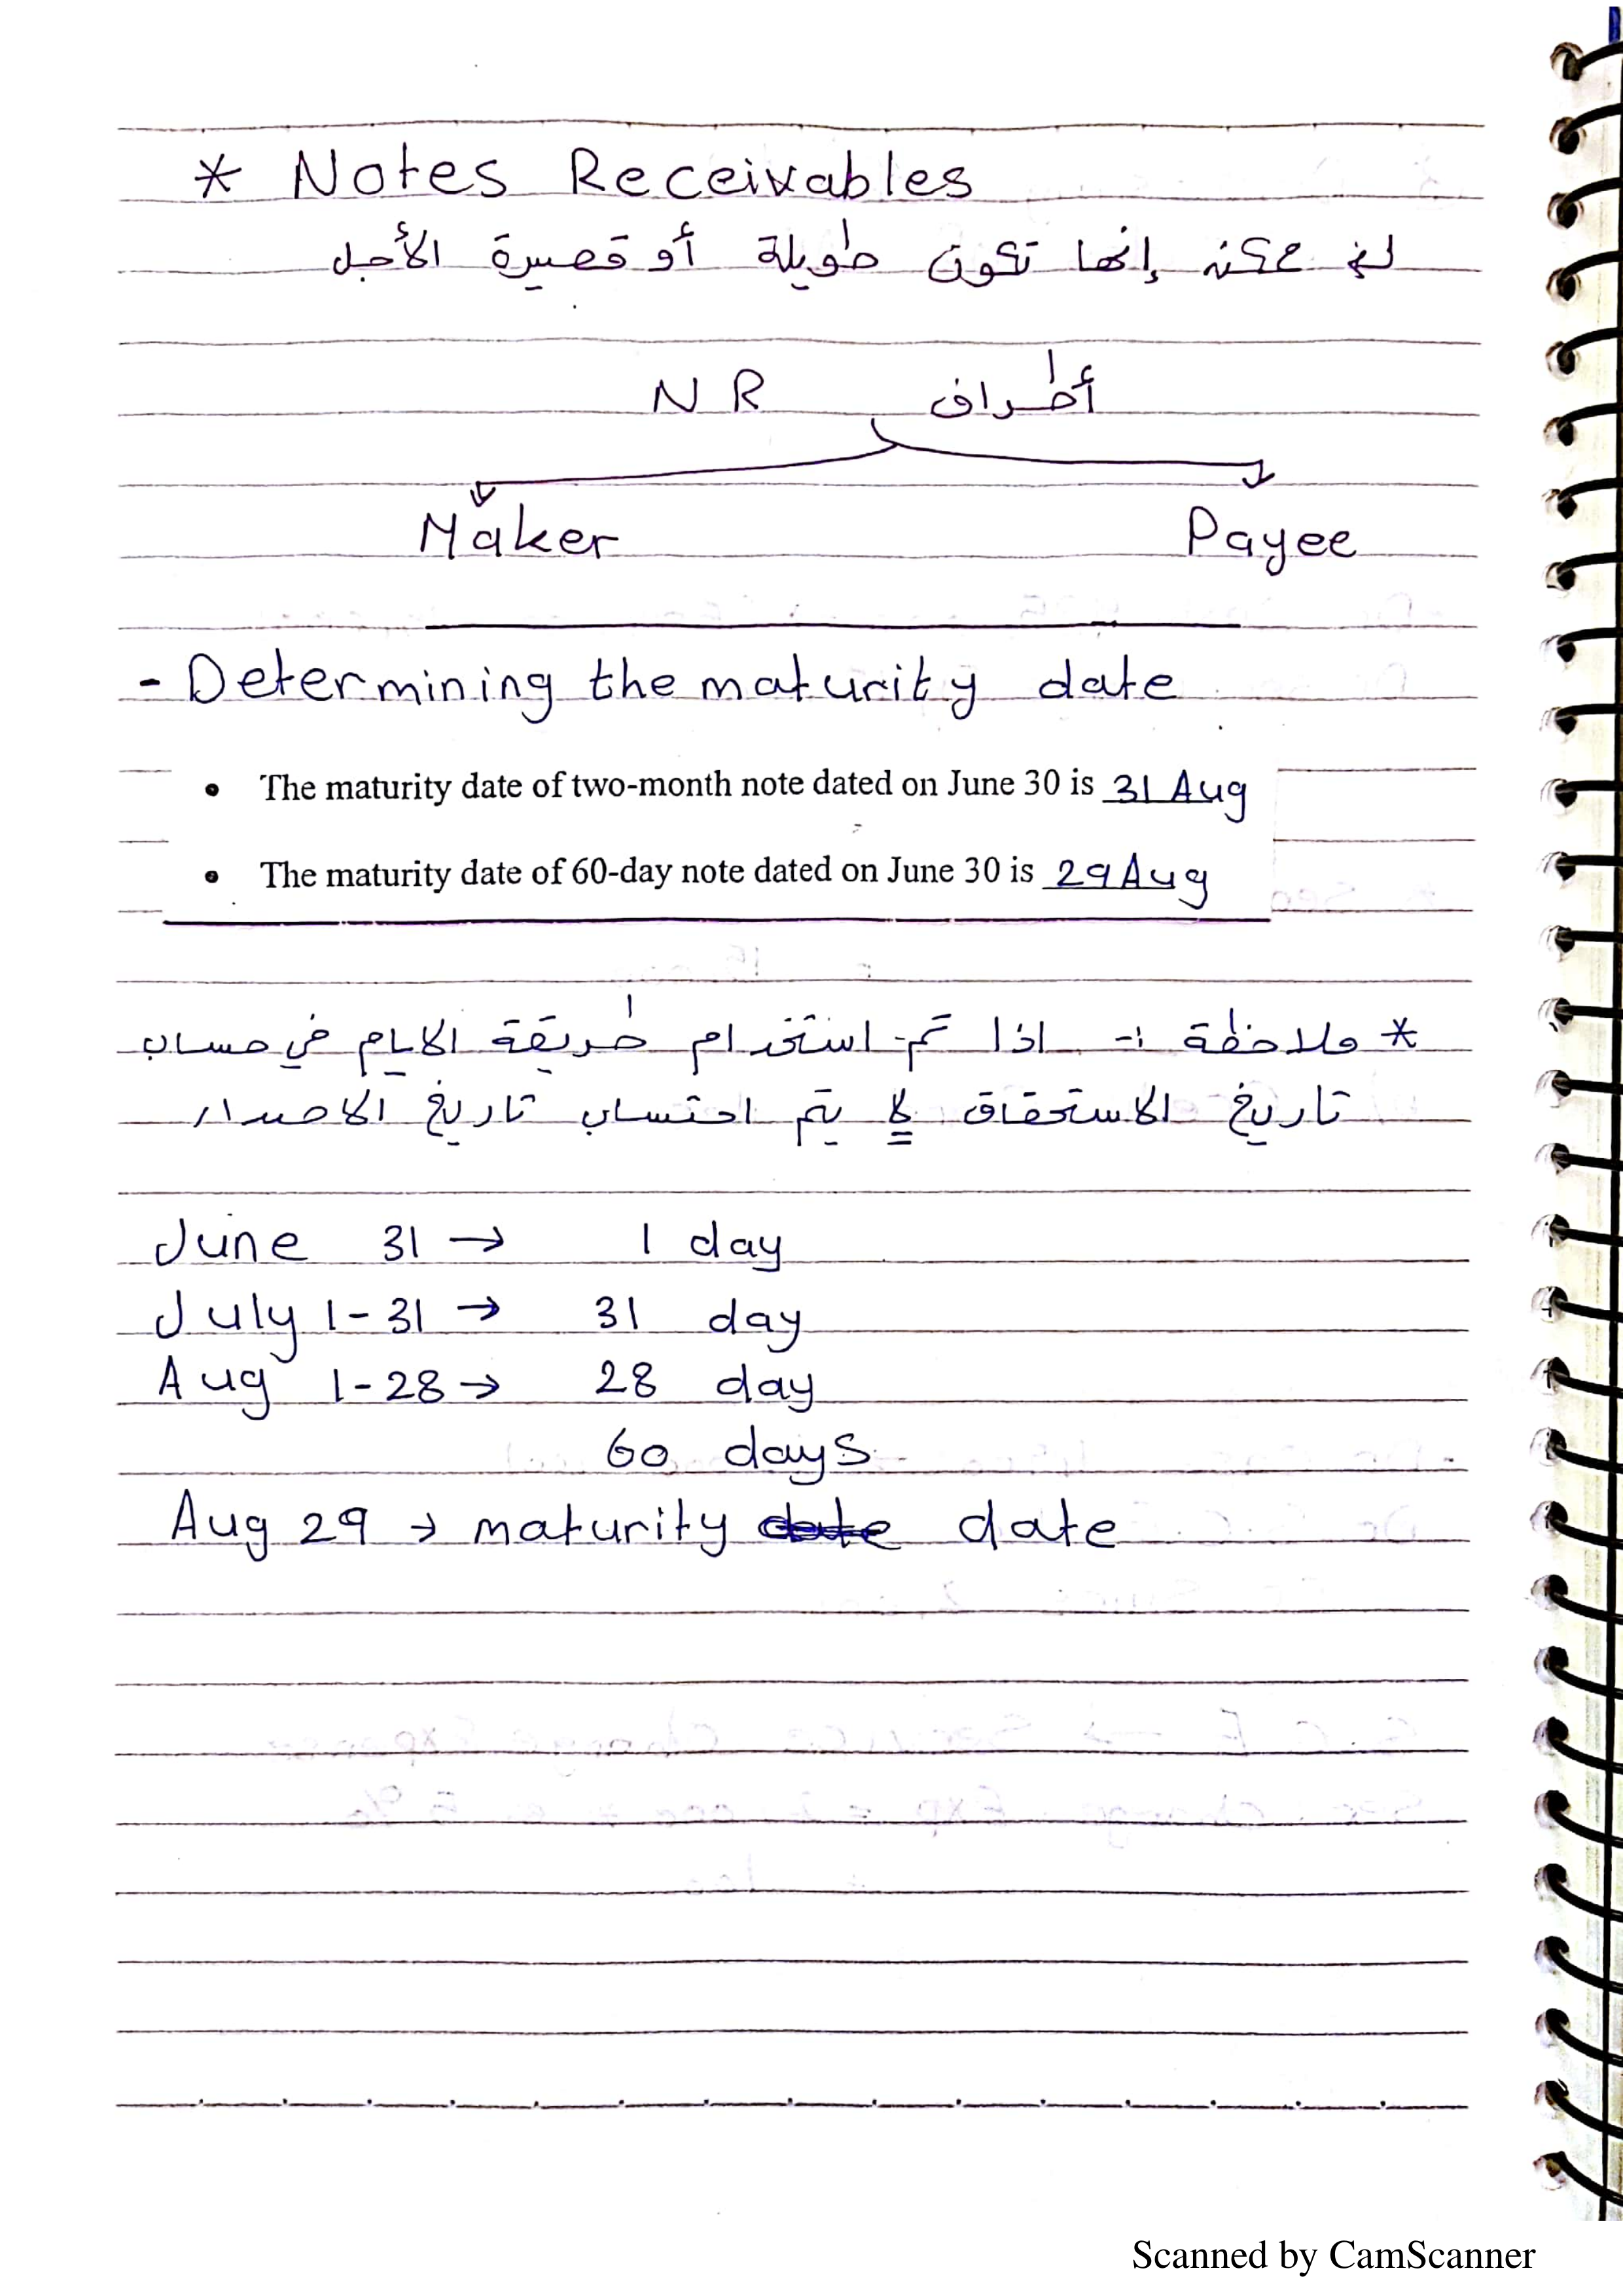 * Notes Receivables
ممكن إنها تكون طويلة أو قصيرة الأجل
أطراف NR
Maker Payee
- Determining the maturity date
• The maturity date of two-month note dated on June 30 is 31 Aug
• The maturity date of 60-day note dated on June 30 is 29 Aug
* ملاحظة :- اذا تم استخدام طريقة الايام في حساب
تاريخ الاستحقاق لا يتم احتساب تاريخ الاصدار
June 31 → 1 day
July 1-31 → 31 day
Aug 1-28 → 28 day
60 days
Aug 29 → maturity date
Scanned by CamScanner